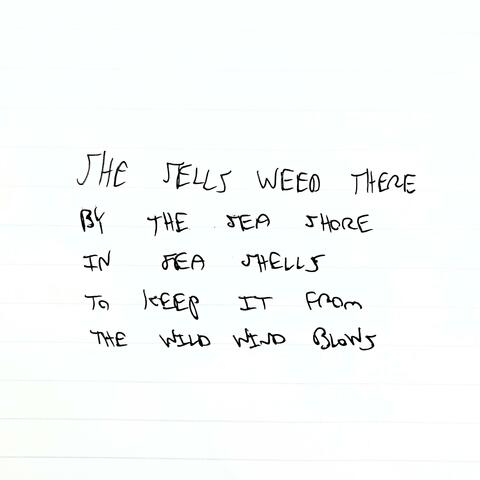 SHE SELLS WEED THERE
BY THE SEA SHORE
IN SEA SHELLS
TO KEEP IT FROM
THE WILD WIND BLOWS